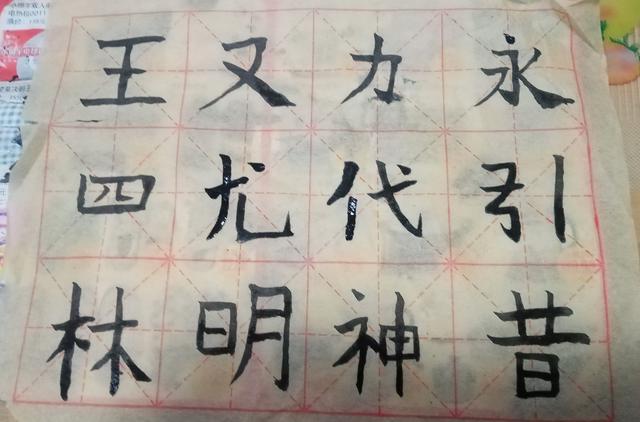 王又力永
四尤代引
林明神昔